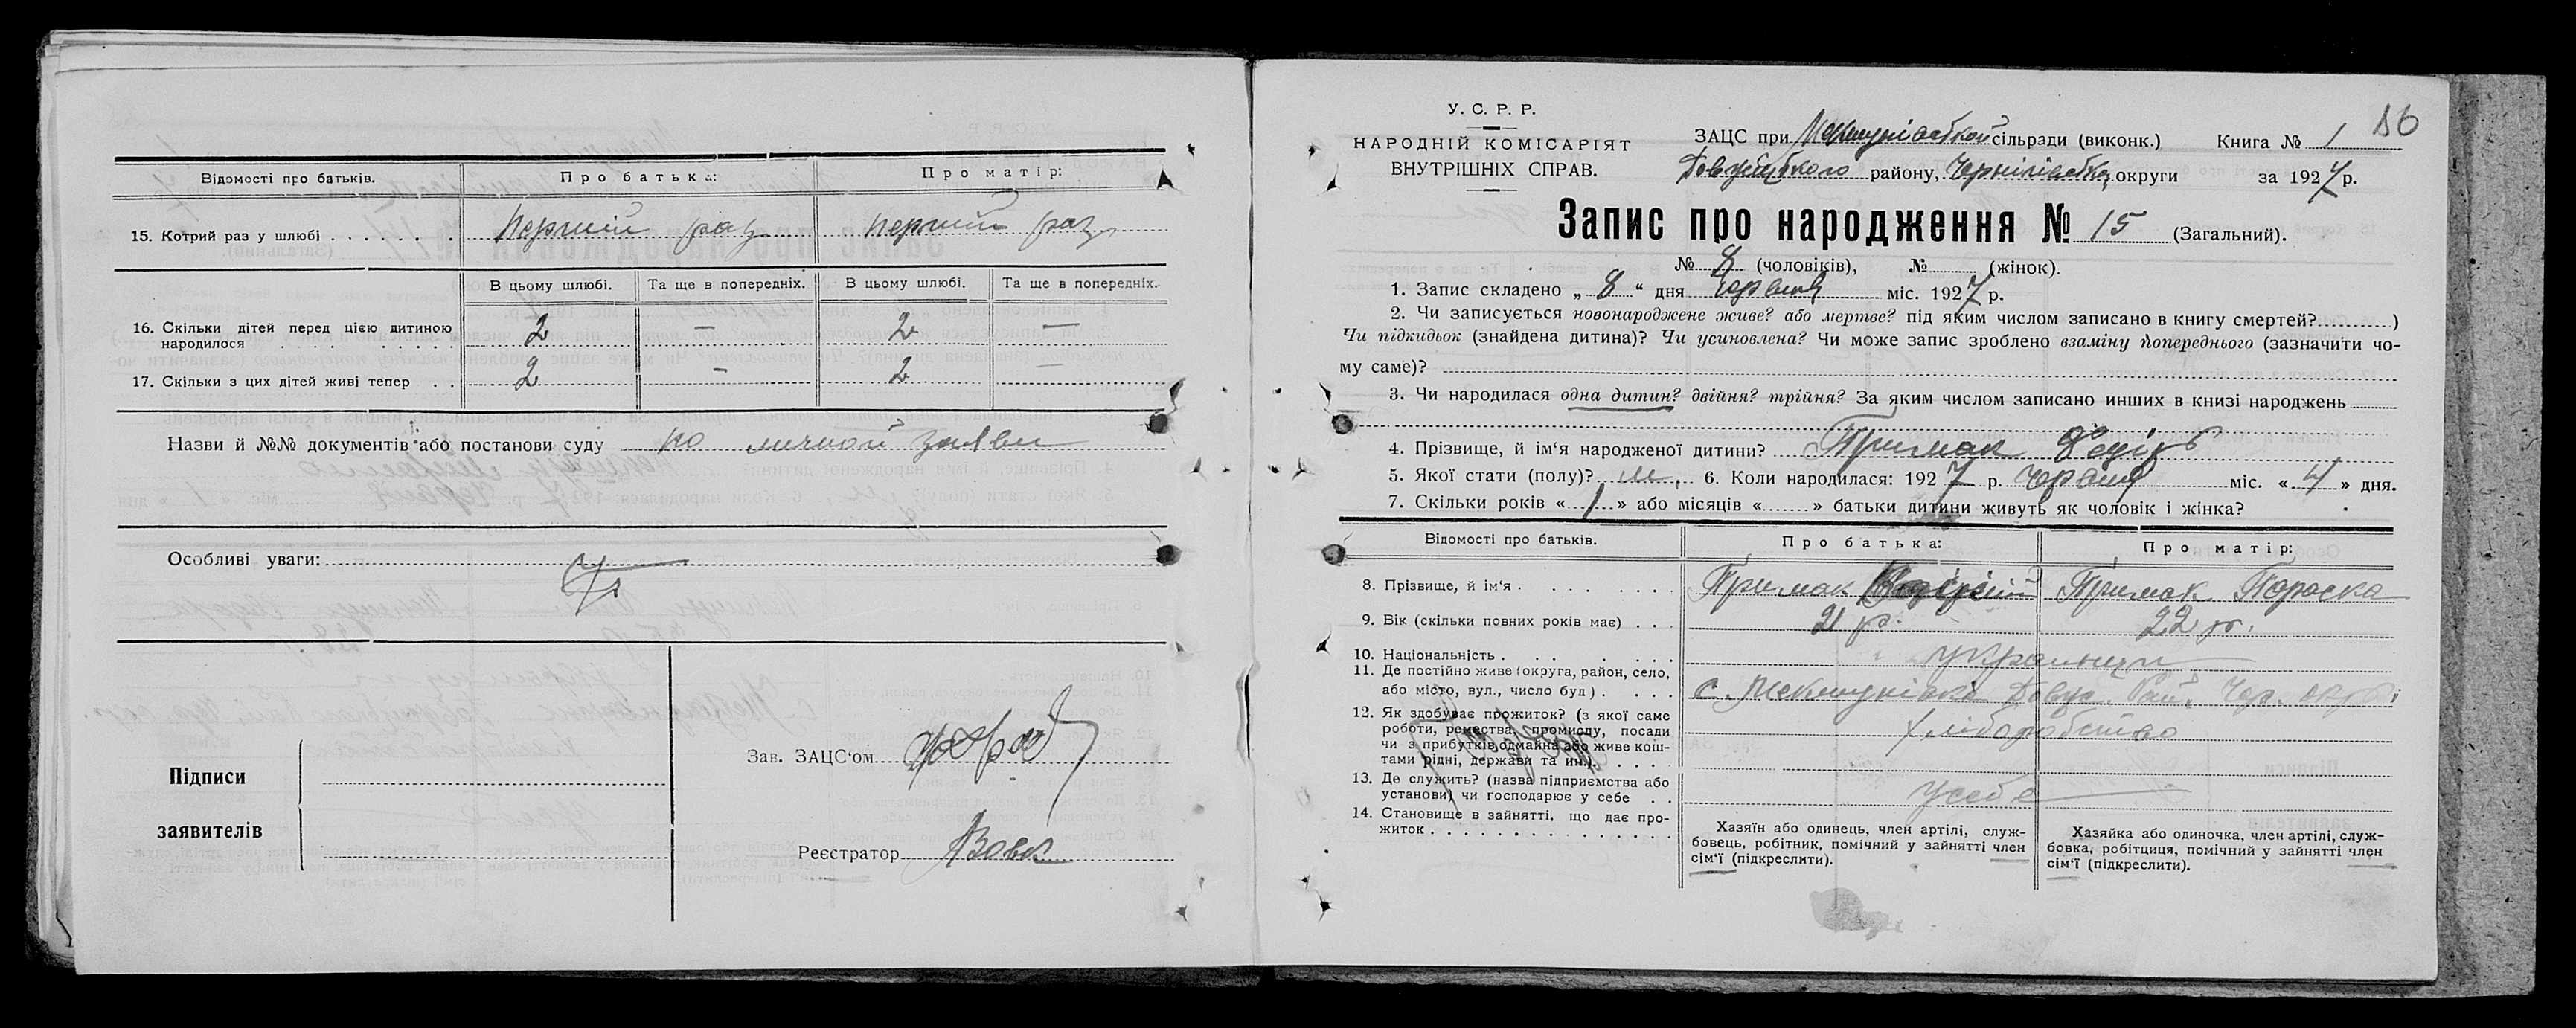 Відомості про батьків. Про батька: Про матір:
15. Котрий раз у шлюбі . . . . . . . перший раз перший раз
В цьому шлюбі. Та ще в попередніх. В цьому шлюбі. Та ще в попередніх.
16. Скільки дітей перед цією дитиною
народилося . . . . . . . . . . 2 — 2 —
17. Скільки з цих дітей живі тепер . . 2 — 2 —
Назви й №№ документів або постанови суду по личной заяви
Особливі уваги:
Підписи
заявителів
Зав. ЗАЦС'ом
Реєстратор Вовк
86
У. С. Р. Р.
НАРОДНІЙ КОМІСАРІЯТ
ВНУТРІШНІХ СПРАВ.
ЗАЦС при сільради (виконк.) Книга № 1
району, округи за 1927 р.
Запис про народження № 15 (Загальний).
№ 8 (чоловіків), № (жінок).
1. Запис складено „ 8 “ дня Червня міс. 1927 р.
2. Чи записується новонароджене живе? або мертве? під яким числом записано в книгу смертей? )
Чи підкидьок (знайдена дитина)? Чи усиновлена? Чи може запис зроблено взаміну попереднього (зазначити чо-
му саме)?
3. Чи народилася одна дитин? двійня? трійня? За яким числом записано инших в книзі народжень
4. Прізвище, й ім'я народженої дитини? Примак
5. Якої стати (полу)? м. 6. Коли народилася: 1927 р. Червня міс. « 4 » дня.
7. Скільки років « 1 » або місяців « » батьки дитини живуть як чоловік і жінка?
Відомості про батьків. Про батька: Про матір:
8. Прізвище, й ім'я . . . . . . . Примак Примак Параска
9. Вік (скільки повних років має) . . . 21 р. 22 р.
10. Національність . . . . . . . українци
11. Де постійно живе (округа, район, село,
або місто, вул., число буд) . . . . с.
12. Як здобуває прожиток? (з якої саме
роботи, ремества, промислу, посади хліборобство
чи з прибутків, одмайна або живе кош-
тами рідні, держави та ин.). . . . .
13. Де служить? (назва підприємства або
установи) чи господарює у себе . . у себе
14. Становище в зайнятті, що дає про-
житок . . . . . . . . . . . . . .
Хазяїн або одинець, член артілі, служ-
бовець, робітник, помічний у зайнятті член
сім'ї (підкреслити).
Хазяйка або одиночка, член артілі, служ-
бовка, робітциця, помічний у зайнятті член
сім'ї (підкреслити).